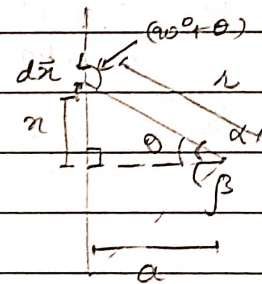 (90°+θ)
dx⃗
r
x
α
θ
β
a